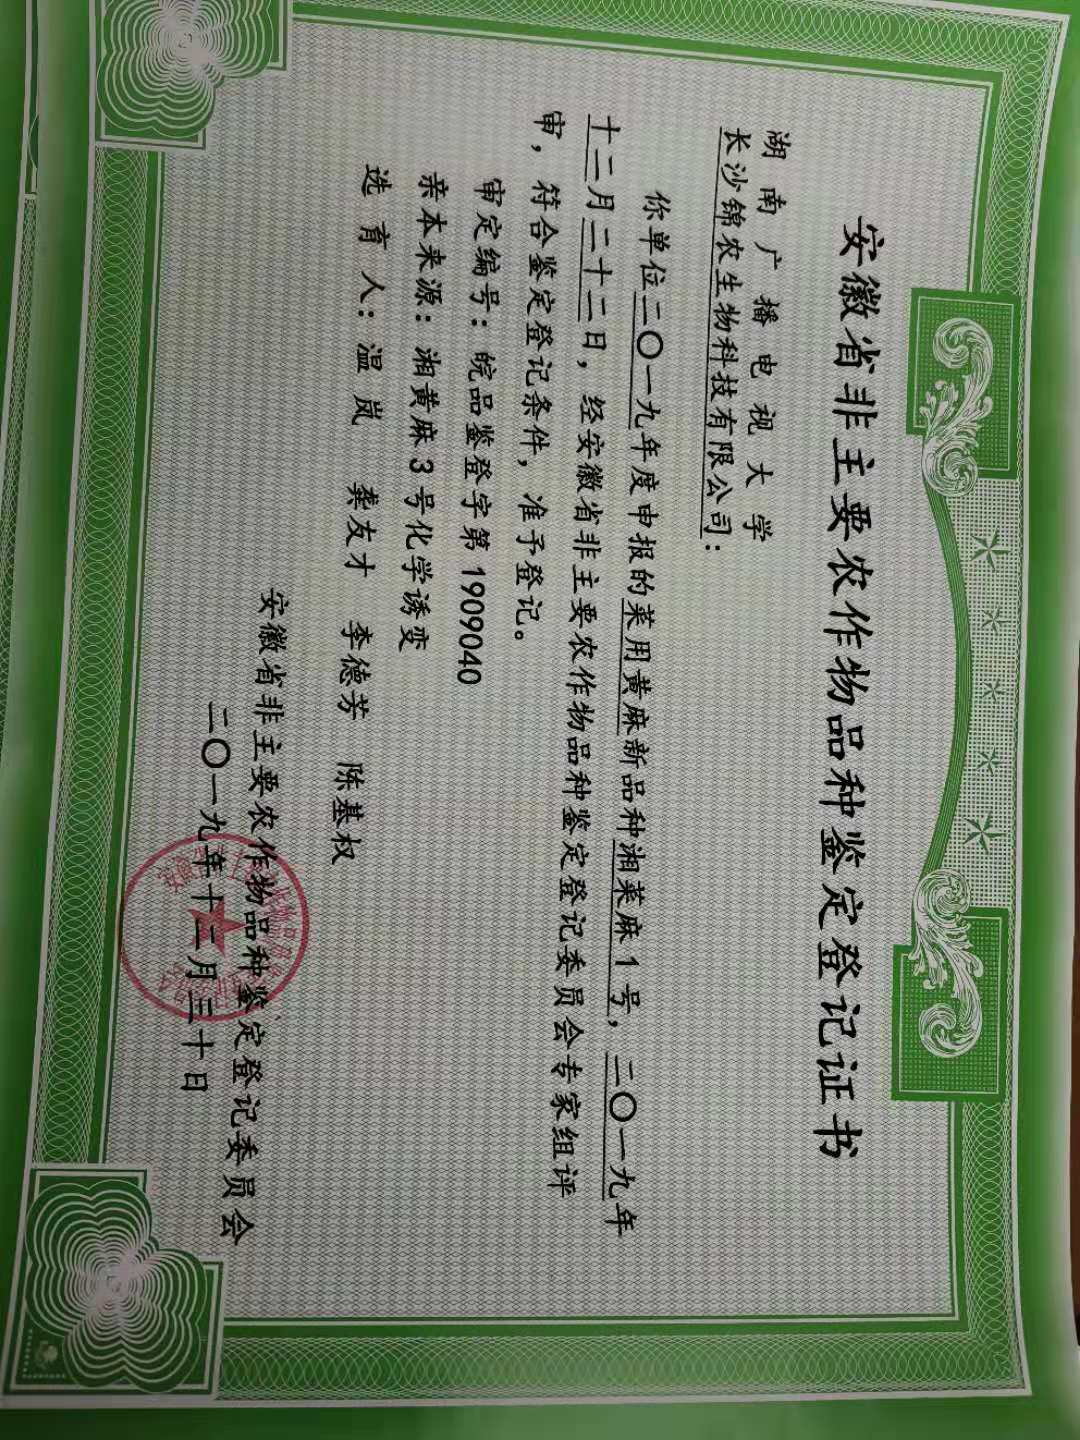 安徽省非主要农作物品种鉴定登记证书
湖南广播电视大学
长沙锦农生物科技有限公司：
你单位二〇一九年度申报的菜用黄麻新品种湘菜麻1号，二〇一九年
十二月二十二日，经安徽省非主要农作物品种鉴定登记委员会专家组评
审，符合鉴定登记条件，准予登记。
审定编号：皖品鉴登字第1909040
亲本来源：湘黄麻3号化学诱变
选育人：温岚 龚友才 李德芳 陈基权
安徽省非主要农作物品种鉴定登记委员会
二〇一九年十二月三十日